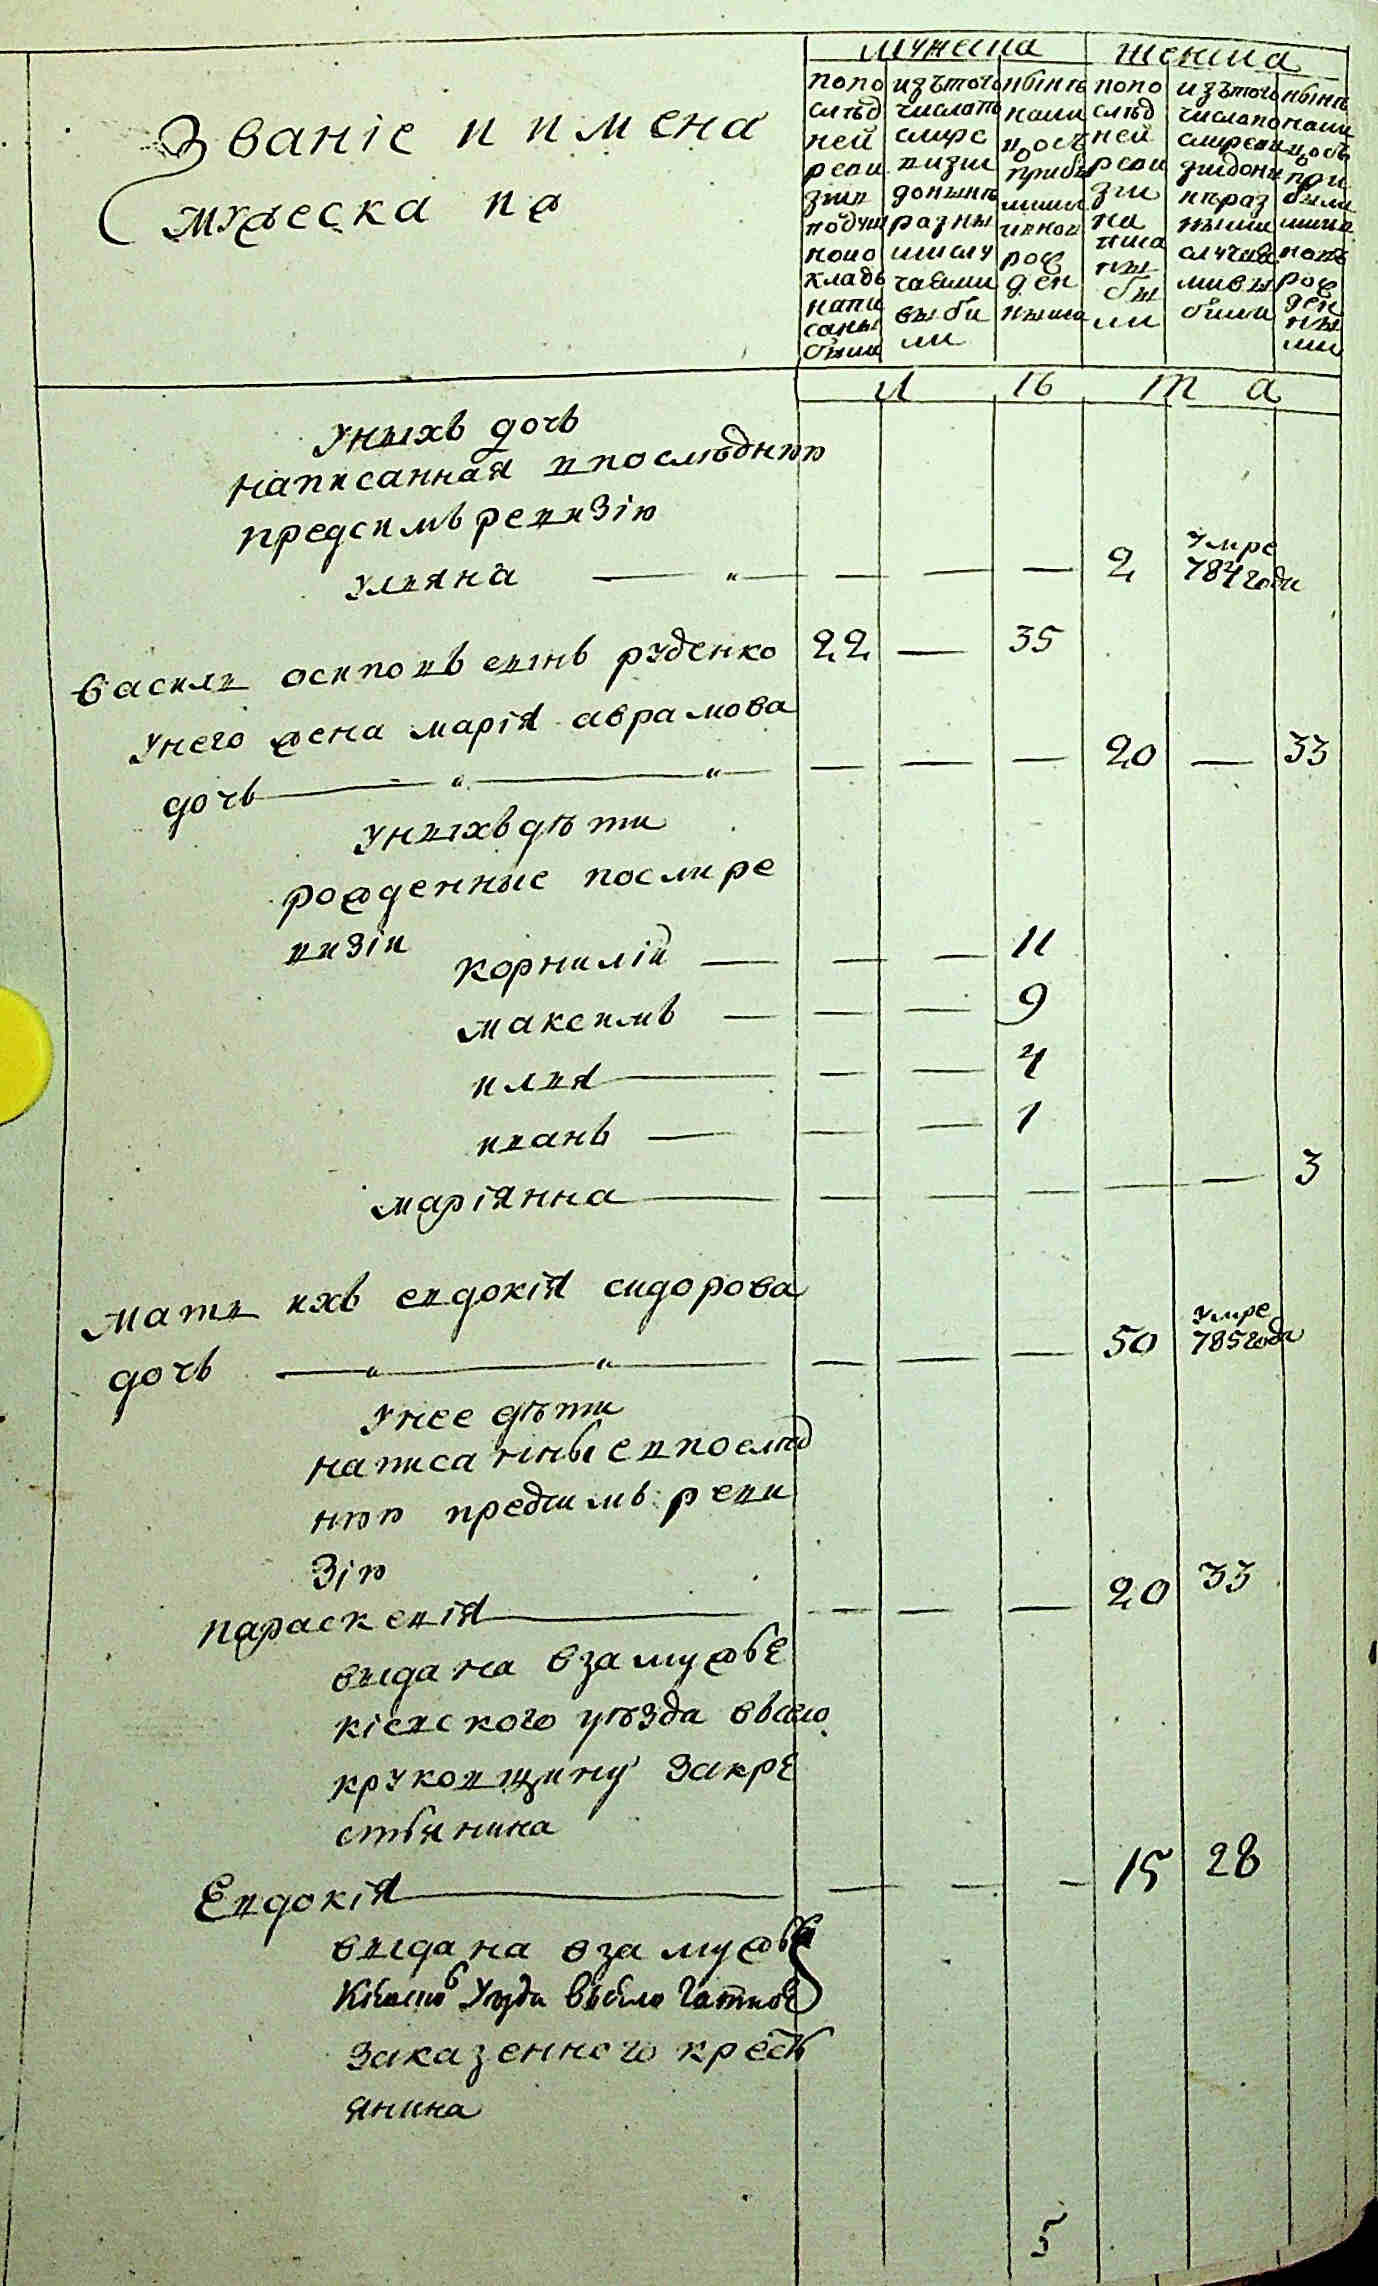 мужеска женска
Званіе и имена
мужеска по
попо
слѣд
ней
реви
зіи
подуш
ному
кладъ
напи
саны
были
изътого
числапо
слѣре
визіи
донынѣ
разны
мислу
чаями
выбы
ли
нынѣ
нали
цость
прибы
лыми
ивнов
рож
ден
ными
попо
слѣд
ней
реви
зіи
на
писа
ны
бы
ли
изътого
числапо
слѣреви
зіидоны
нѣраз
ными
случая
мивы
были
нынѣ
нали
цость
при
былы
мии
новъ
рож
ден
ны
ми
Л ѣ т а
Унихъ дочь
написанная впослѣднюю
предсимъ ревизію
Ульяна — " — — — — 2 Умре 784 года
василь осиповъ сынъ руденко 22 — 35
Унего жена марія аврамова
дочь — " — " — — — — 20 — 33
Унихъ дѣти
рожденные послире
визіи
корнилій — — — 11
максимъ — — — 9
илья — — — 4
иванъ — — — 1
маріянна — — — — — — 3
мать ихъ евдокія сидорова
дочь — " — " — — — — 50 Умре 785 года
Унее дѣти
написанные впослѣд
нюю предсимъ реви
зію
параскевія — — — — 20 33
выдана взамужье
кіевского уѣзда въсело
круковщину закре
стьянина
Евдокія — — — — 15 28
выдана взамужье
Кіевского Уезда въсело Гатное
заказенного кресть
янина
5